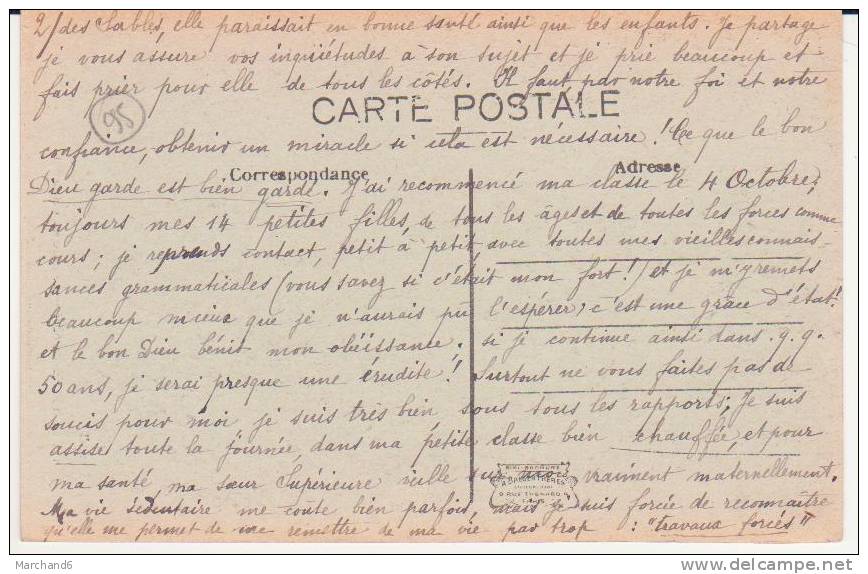 2/ des Sables, elle paraissait en bonne santé ainsi que les enfants. Je partage
je vous assure vos inquiétudes à son sujet et je prie beaucoup et
fais prier pour elle de tous les côtés. Il faut, par notre foi et notre
95
CARTE POSTALE
confiance, obtenir un miracle si cela est nécessaire! Ce que le bon
Correspondance
Adresse
Dieu garde est bien gardé. J'ai recommencé ma classe le 4 Octobre;
toujours mes 14 petites filles, de tous les âges et de toutes les forces comme
cours; je reprends contact, petit à petit, avec toutes mes vieilles connais-
sances grammaticales (vous savez si c'était mon fort!) et je m'y remets
beaucoup mieux que je n'aurais pu l'espérer, c'est une grâce d'état!
et le bon Dieu bénit mon obéissance. si je continue ainsi dans q.q.
50 ans, je serai presque une érudite! Surtout ne vous faites pas de
soucis pour moi je suis très bien sous tous les rapports; Je suis
assise toute la journée, dans ma petite classe bien chauffée, et pour
ma santé, ma sœur Supérieure veille sur moi vraiment maternellement.
Ma vie sédentaire me coûte bien parfois, mais je suis forcée de reconnaître
qu'elle me permet de me remettre de ma vie par trop : "travaux forcés"
Marchand6
www.delcampe.net